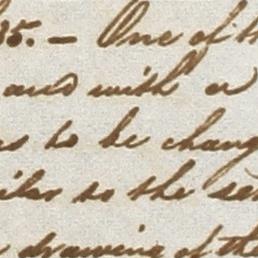 35. — One of th
and with a
as to be chang
iles so the se
drawing of the